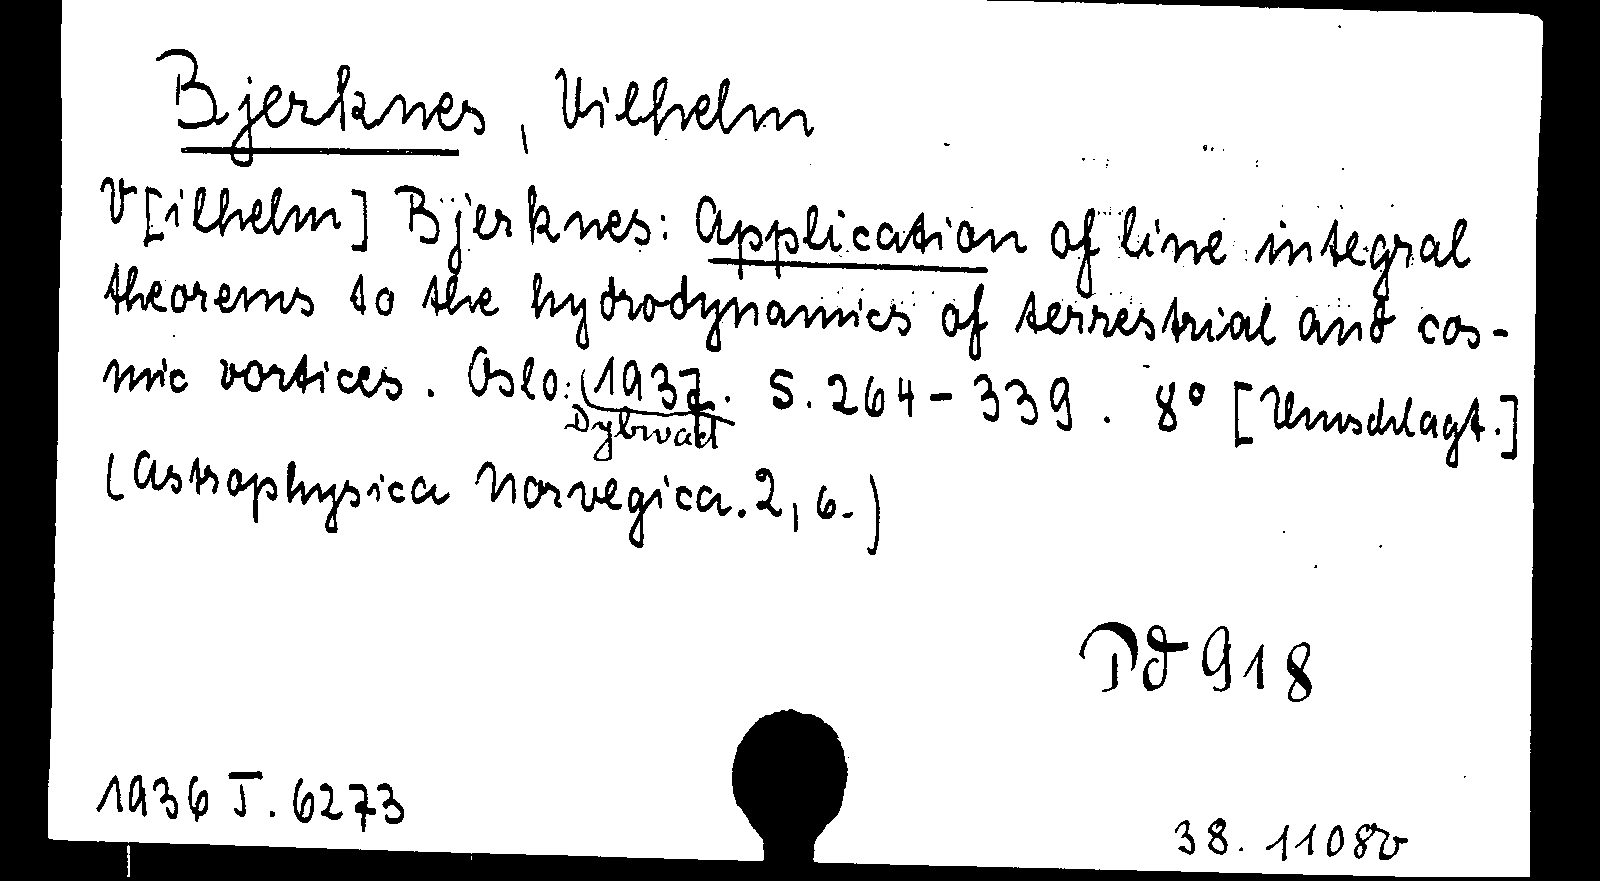 Bjerknes, Vilhelm
V[ilhelm] Bjerknes: Application of line integral
theorems to the hydrodynamics of terrestrial and cos-
mic vortices. Oslo: 1937. S. 264-339. 8° [Umschlagt.]
Dybwad
(Astrophysica Norvegica. 2, 6.)
Pd 918
1936 I. 6273
38. 1108